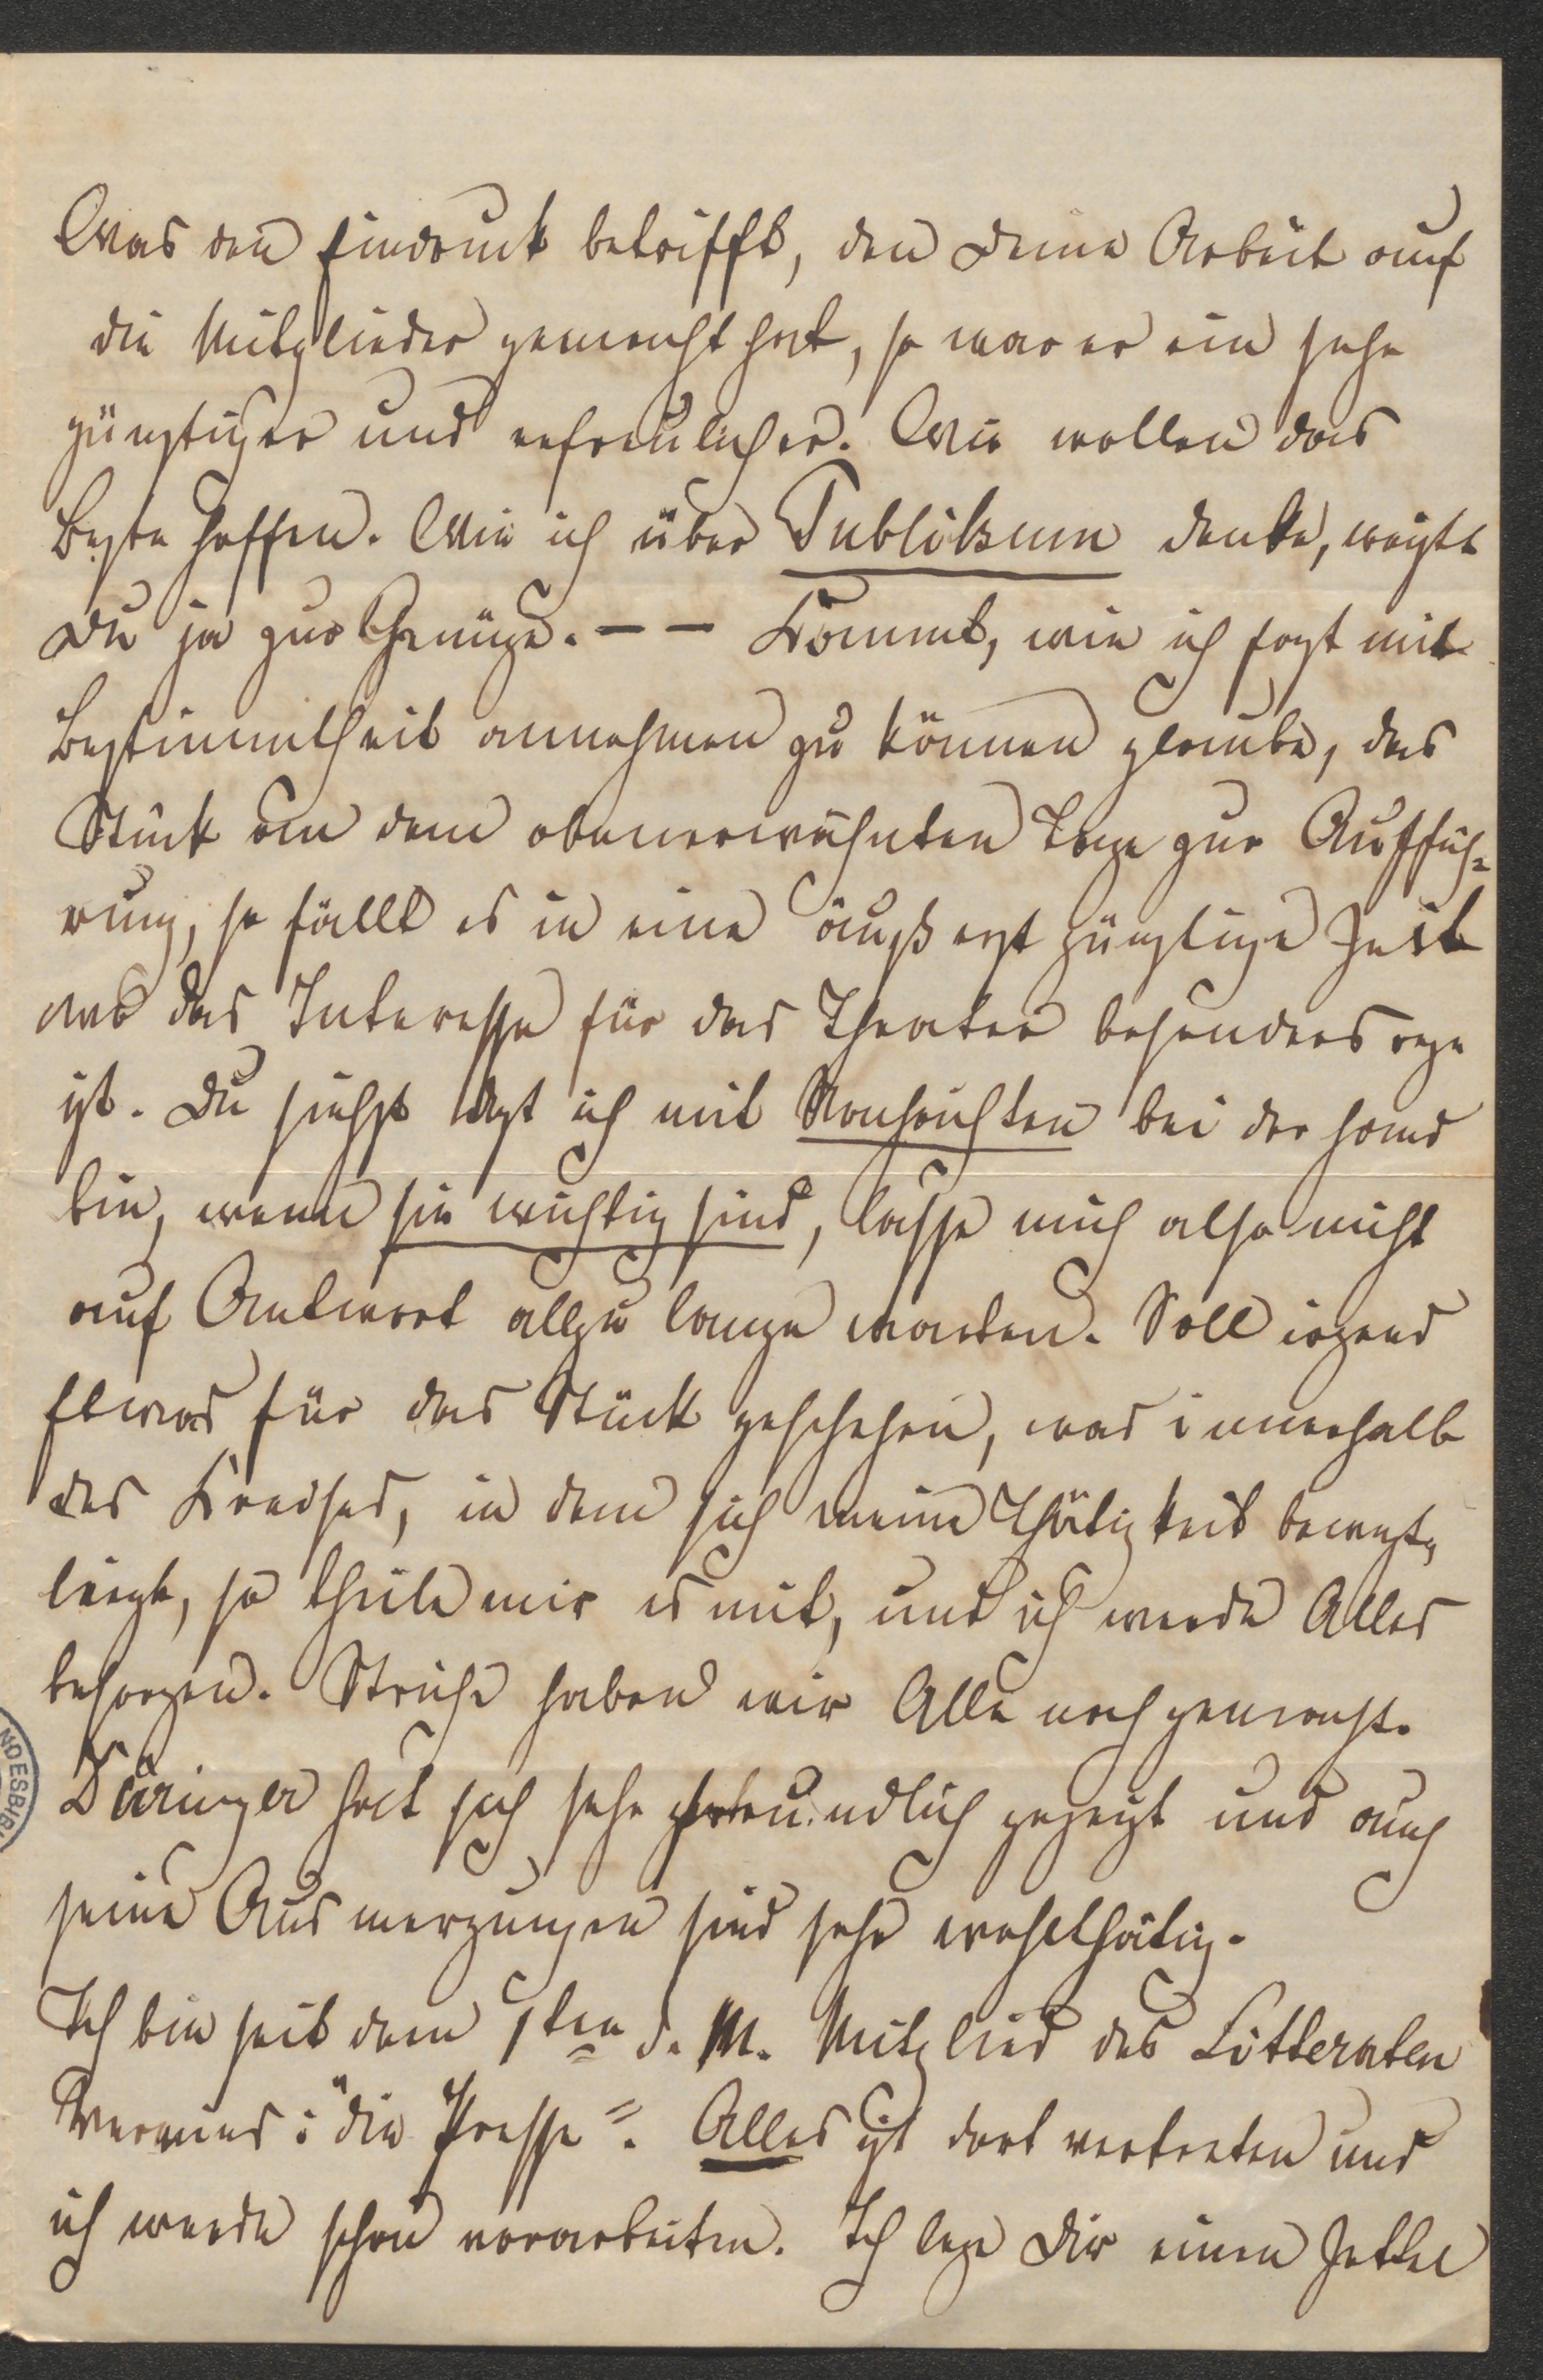 Was den Eindruck betrifft, den Deine Arbeit auf
die Mitglieder gemacht hat, so war er ein sehr
günstiger und erfreulicher. Wir wollen das
Beste hoffen. Wie ich über Publikum denke, weißt
Du ja zur Genüge. – – Kommt, wie ich fast mit
Bestimmtheit annehmen zu können glaube, das
Stück an dem obenerwähnten Tage zur Auffüh=
rung, so fällt es in eine äußerst günstige Zeit
wo das Interesse für das Theater besonders rege
ist. Du siehst daß ich mit Nachrichten bei der Hand
bin, wenn sie wichtig sind, lasse mich also nicht
auf Antwort allzu lange warten. Soll irgend
Etwas für das Stück geschehen, was innerhalb
des Kreises, in dem sich meine Thätigkeit bewegt,
liegt, so theile mir es mit, und ich werde Alles
besorgen. Striche haben wir Alle nach gemacht.
Düringer hat sich sehr freundlich gezeigt und auch
seine Ausmerzungen sind sehr wohlthätig.
Ich bin seit dem 1ten d. M. Mitglied des Litteraten
Vereins: "die Presse". Alles ist dort vertreten und
ich werde schon vorarbeiten. Ich lege Dir einen Zettel
NDESBIBL